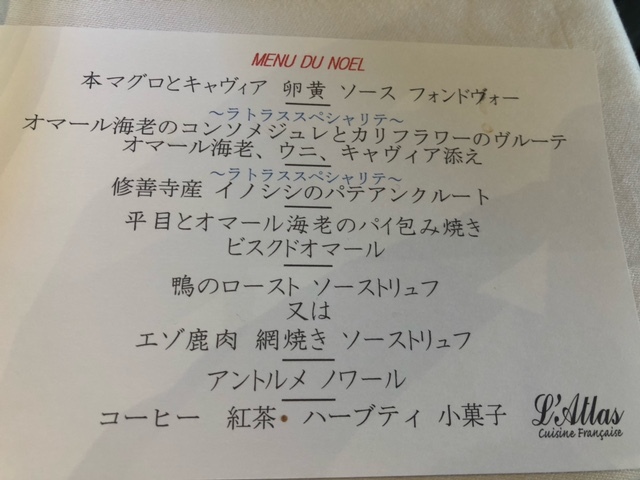 MENU DU NOEL
本マグロとキャヴィア 卵黄 ソース フォンドヴォー
～ラトラススペシャリテ～
オマール海老のコンソメジュレとカリフラワーのヴルーテ
オマール海老、ウニ、キャヴィア添え
～ラトラススペシャリテ～
修善寺産 イノシシのパテアンクルート
平目とオマール海老のパイ包み焼き
ビスクドオマール
鴨のロースト ソーストリュフ
又は
エゾ鹿肉 網焼き ソーストリュフ
アントルメ ノワール
コーヒー 紅茶・ハーブティ 小菓子
L'Atlas
Cuisine Française